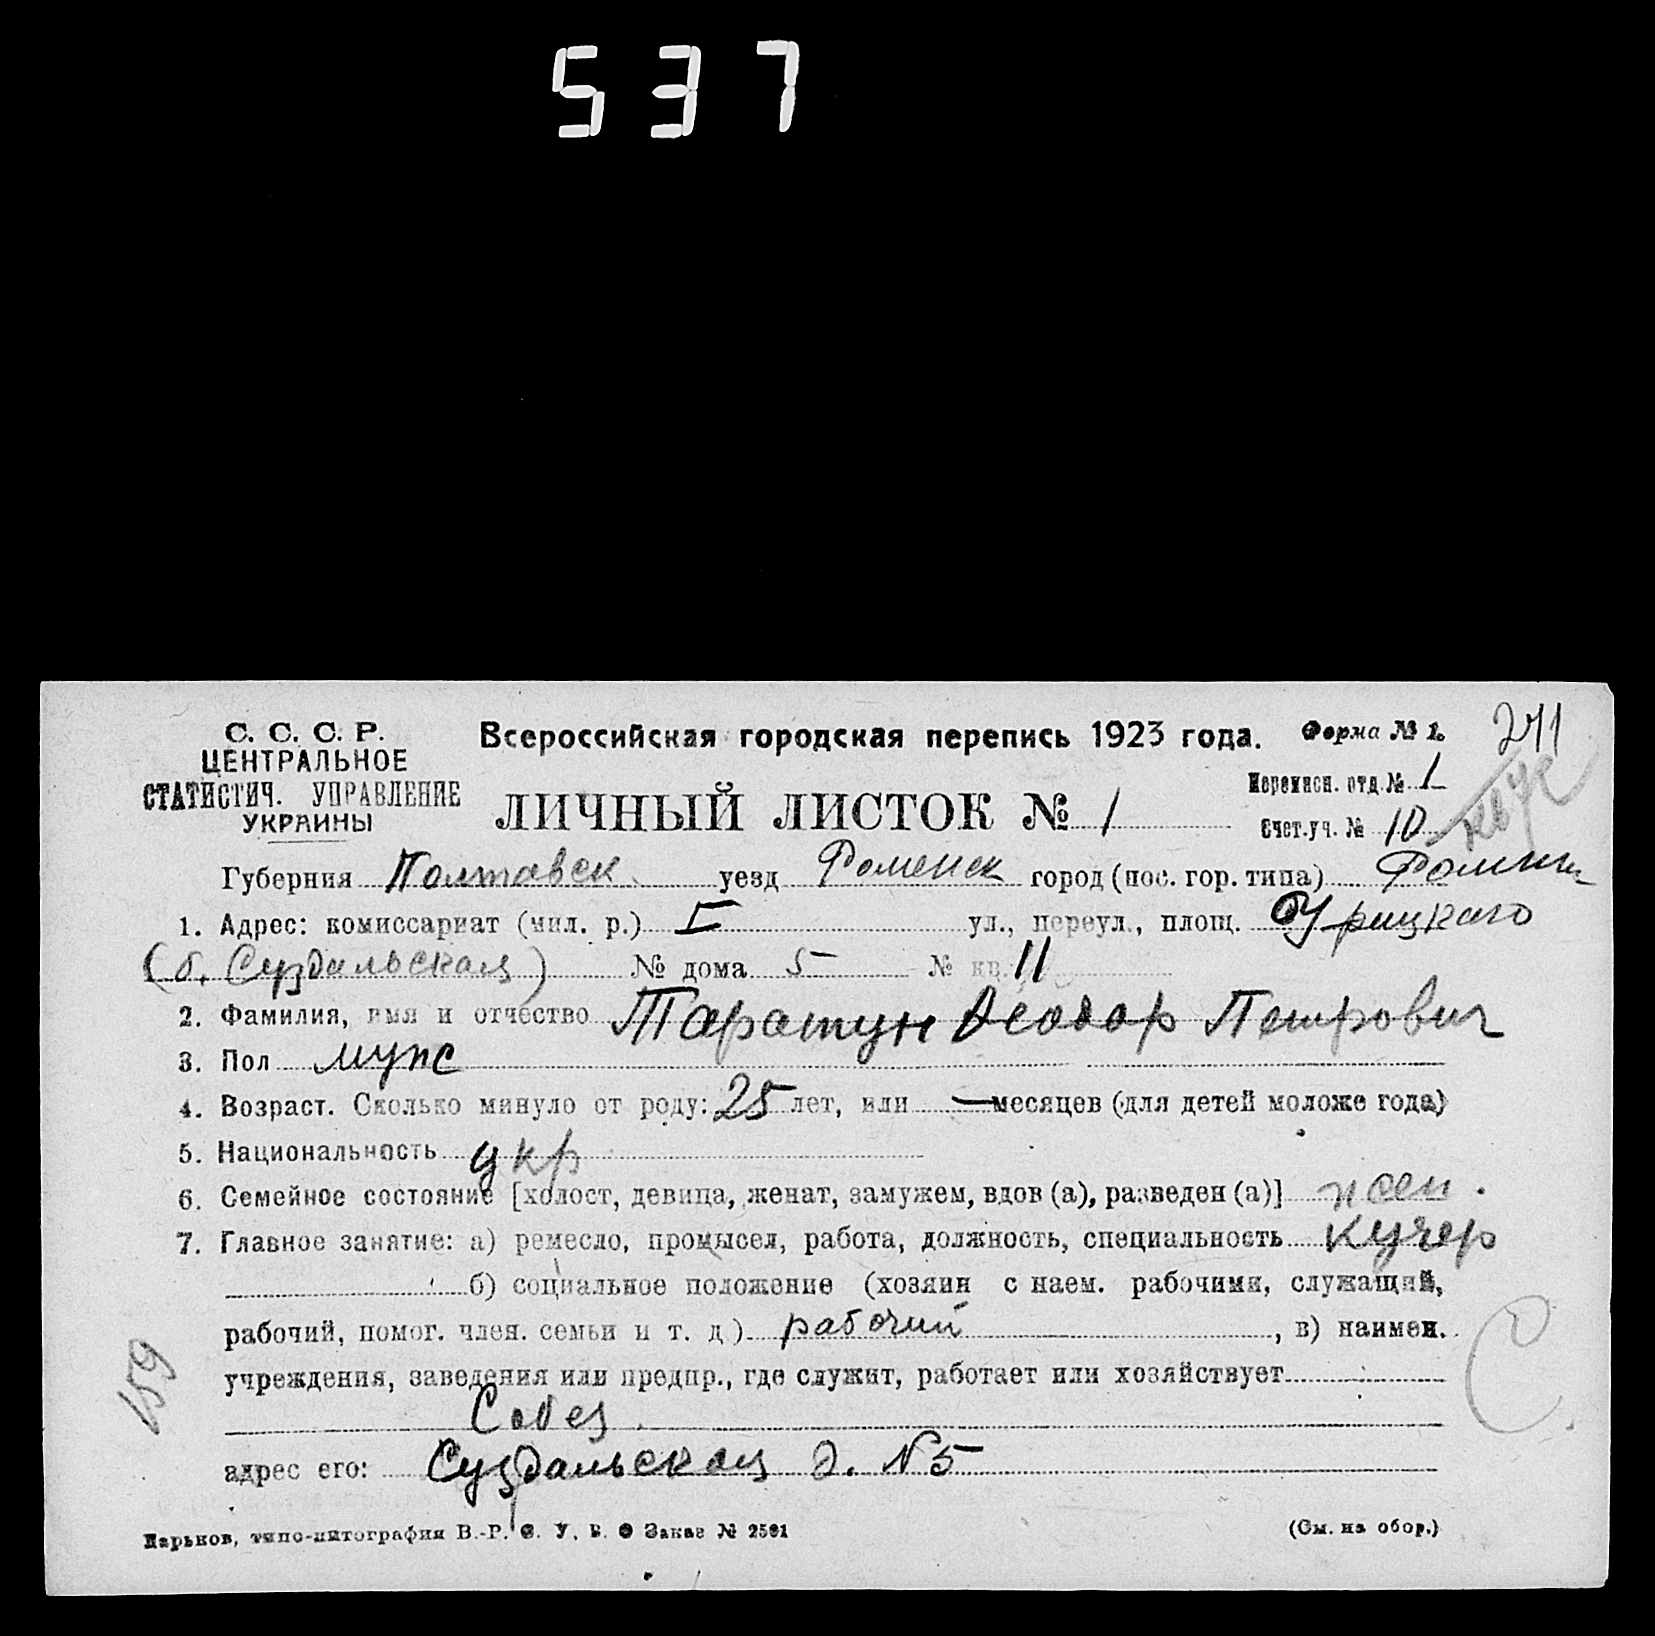 537
С. С. С. Р.
ЦЕНТРАЛЬНОЕ
СТАТИСТИЧ. УПРАВЛЕНИЕ
УКРАИНЫ
Всероссийская городская перепись 1923 года.
Форма № 1.
241
Переписн. отд. № 1
ЛИЧНЫЙ ЛИСТОК № 1
Счет. уч. № 10
Губерния Полтавск. уезд Роменск город (пос. гор. типа) Ромны
1. Адрес: комиссариат (мил. р.) I ул., переул., площ. Урицкаго
(б. Суздальская) № дома 5 № кв. 11
2. Фамилия, имя и отчество Таратун Феодор Петрович
3. Пол муж
4. Возраст. Сколько минуло от роду: 25 лет, или — месяцев (для детей моложе года)
5. Национальность укр
6. Семейное состояние [холост, девица, женат, замужем, вдов (а), разведен (а)] жен.
7. Главное занятие: а) ремесло, промысел, работа, должность, специальность кучер
б) социальное положение (хозяин с наем. рабочими, служащий,
рабочий, помог. член. семьи и т. д.) рабочий, в) наимен.
учреждения, заведения или предпр., где служит, работает или хозяйствует
Собез.
адрес его: Суздальская д. №5
159
С.
Харьков, типо-литография В.-Р. Заказ № 2591
(См. на обор.)